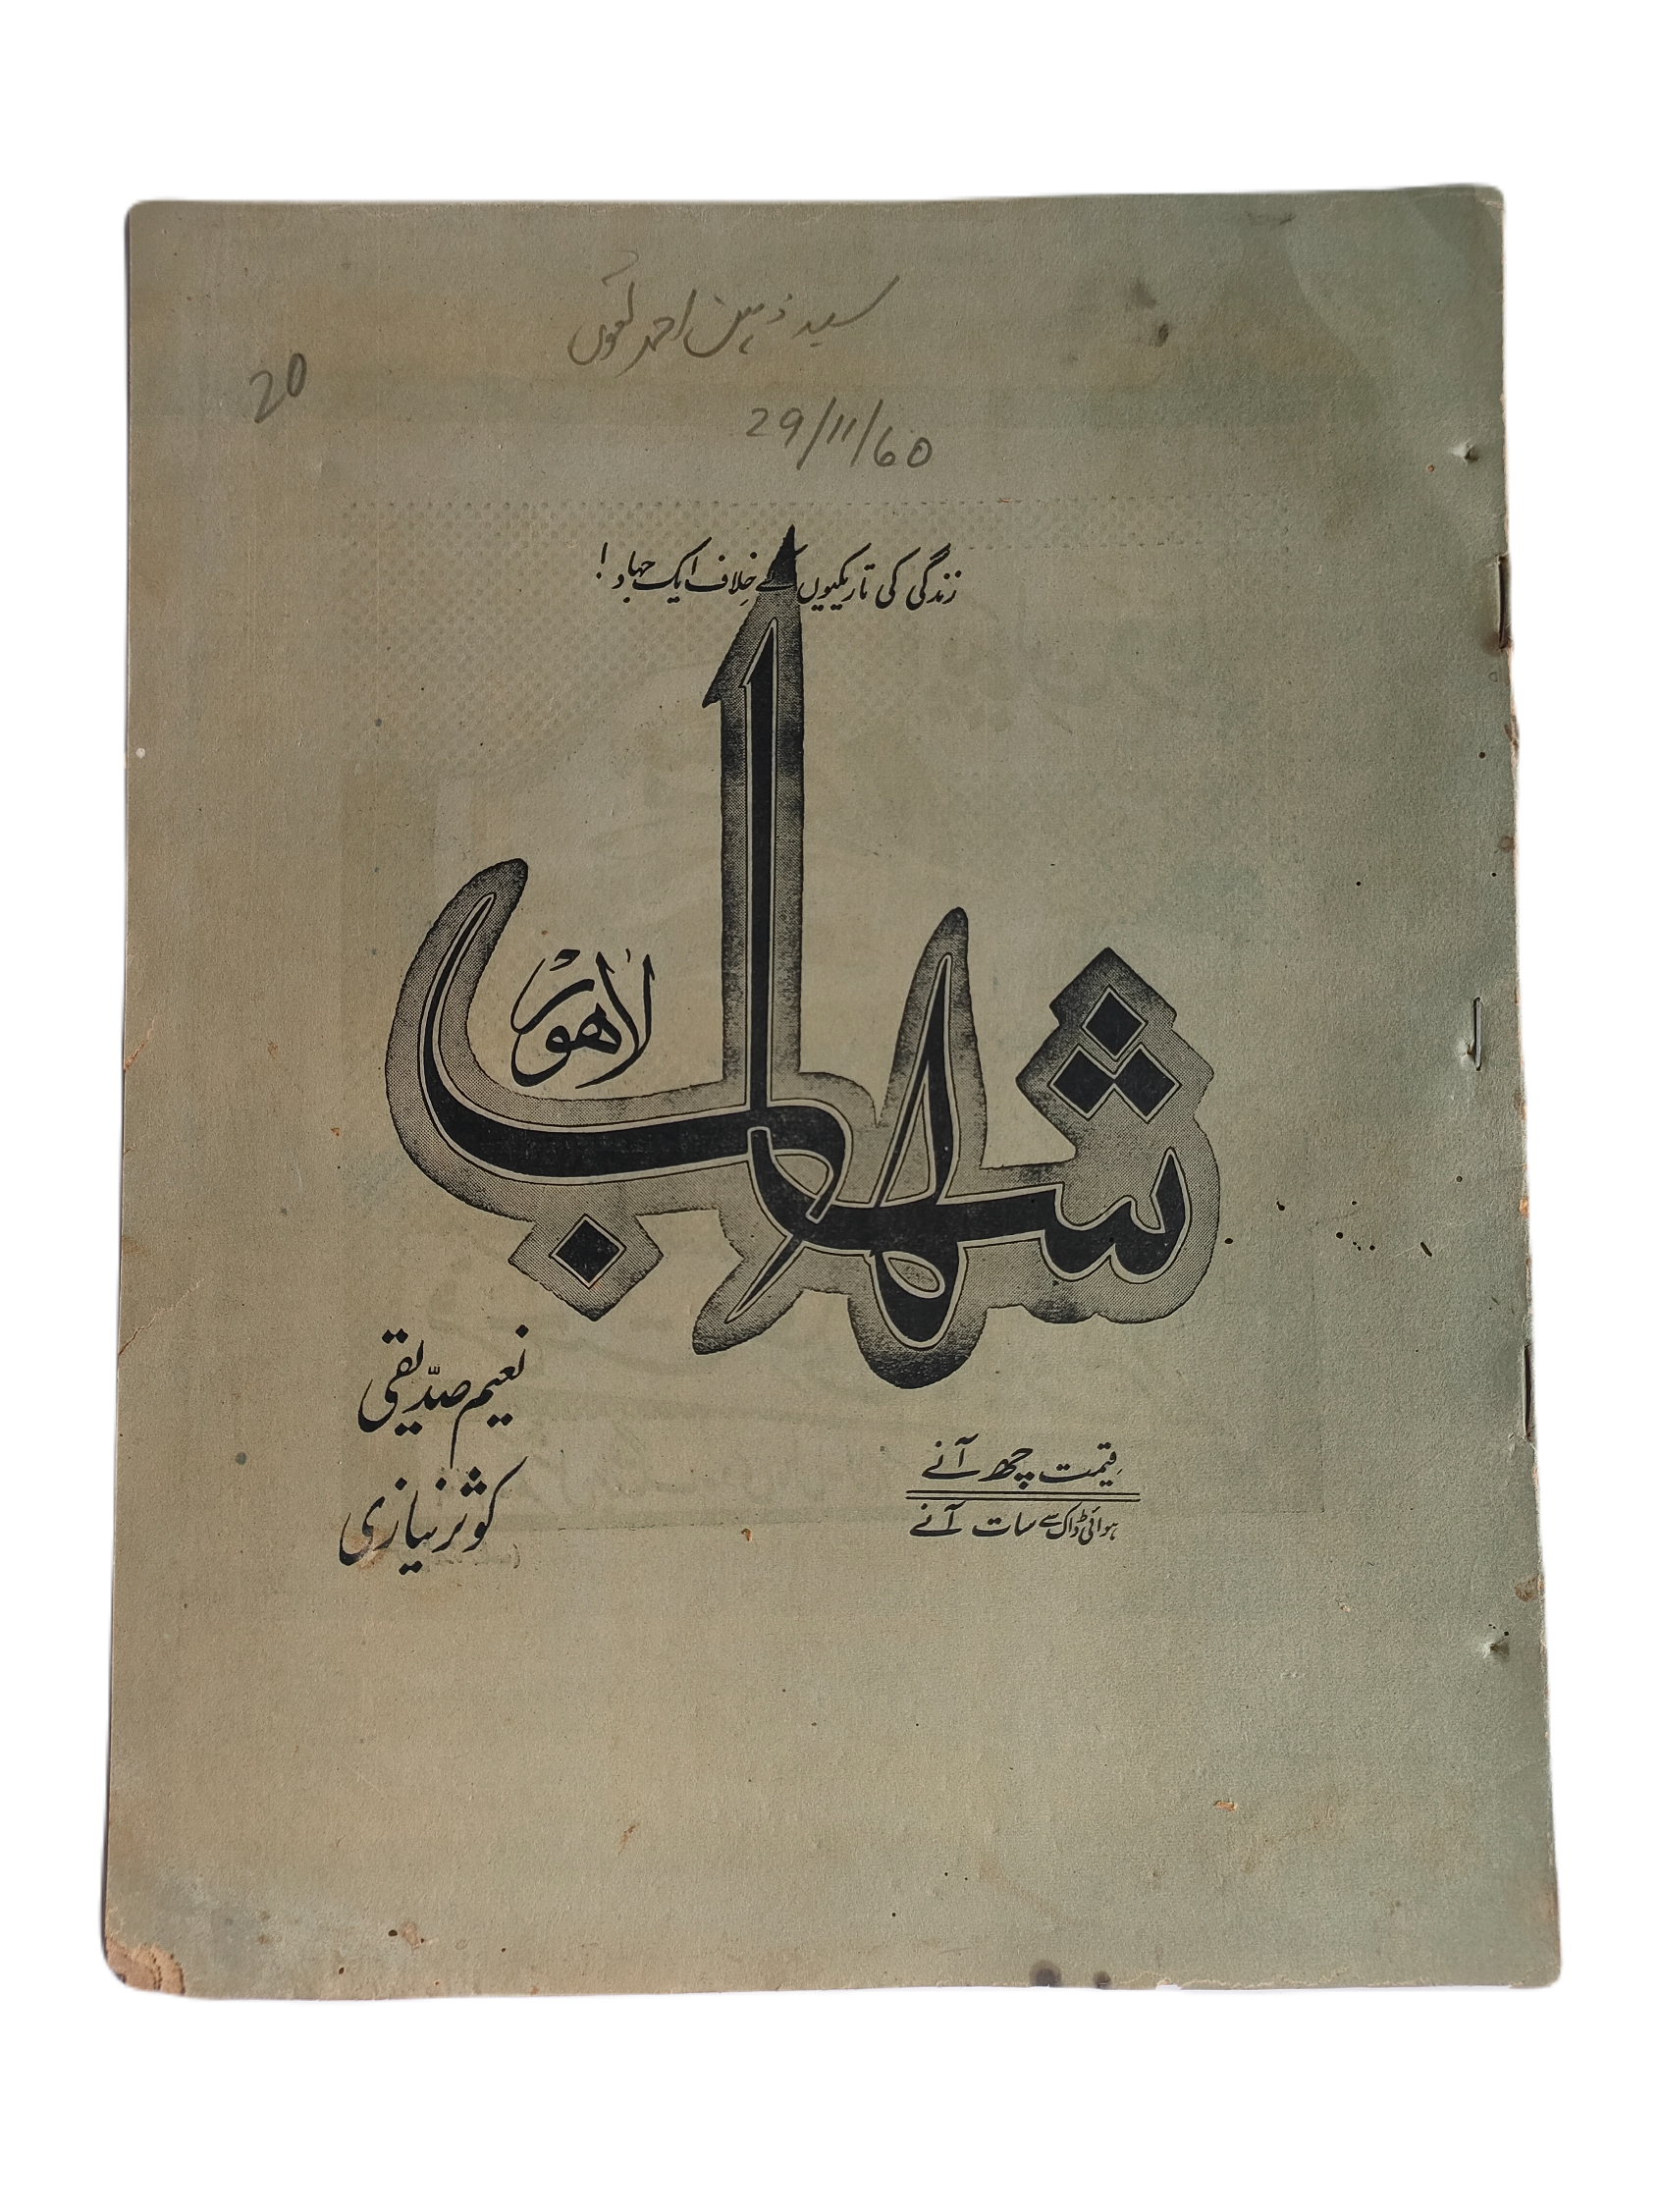 سید ذہین احمد
20
29/11/60
زندگی کی تاریکیوں کے خلاف ایک جہاد!
شہاب
لاہور
نعیم صدیقی
کوثر نیازی
قیمت چھ آنے
ہوائی ڈاک سے سات آنے